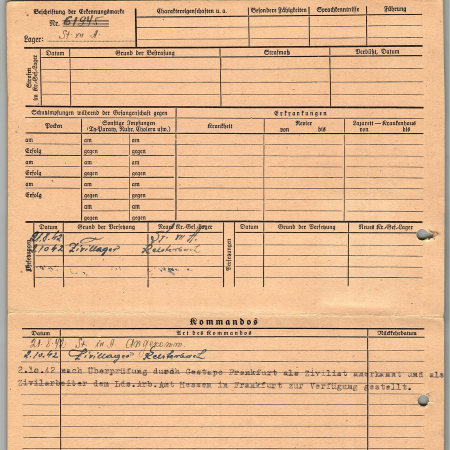 Beschriftung der Erkennungsmarke
Nr. 61945
Lager: St. VII A.
Charaktereigenschaften u. a.
Besondere Fähigkeiten
Sprachkenntnisse
Führung
Strafen im Kr.-Gef.-Lager
Datum
Grund der Bestrafung
Strafmaß
Verbüßt, Datum
Schutzimpfungen während der Gefangenschaft gegen
Erkrankungen
Pocken
Sonstige Impfungen
(Ty-Paraty, Ruhr, Cholera usw.)
Krankheit
Revier
von bis
Lazarett — Krankenhaus
von bis
am am am
Erfolg gegen gegen
am am am
Erfolg gegen gegen
am am am
Erfolg gegen gegen
am am
gegen gegen
Versetzungen
Datum Grund der Versetzung Neues Kr.-Gef.-Lager
Versetzungen
Datum Grund der Versetzung Neues Kr.-Gef.-Lager
21.8.42 St. VII A.
2.10.42 Zivillager Kelsterbach
Kommandos
Datum Art des Kommandos Rückkehrdatum
21.8.42 St. VII A. Angekomm.
2.10.42 Zivillager Kelsterbach
2.10.42 nach Überprüfung durch Gestapo Frankfurt als Zivilist anerkannt und als
Zivilarbeiter dem Lds.Arb.Amt Hessen in Frankfurt zur Verfügung gestellt.